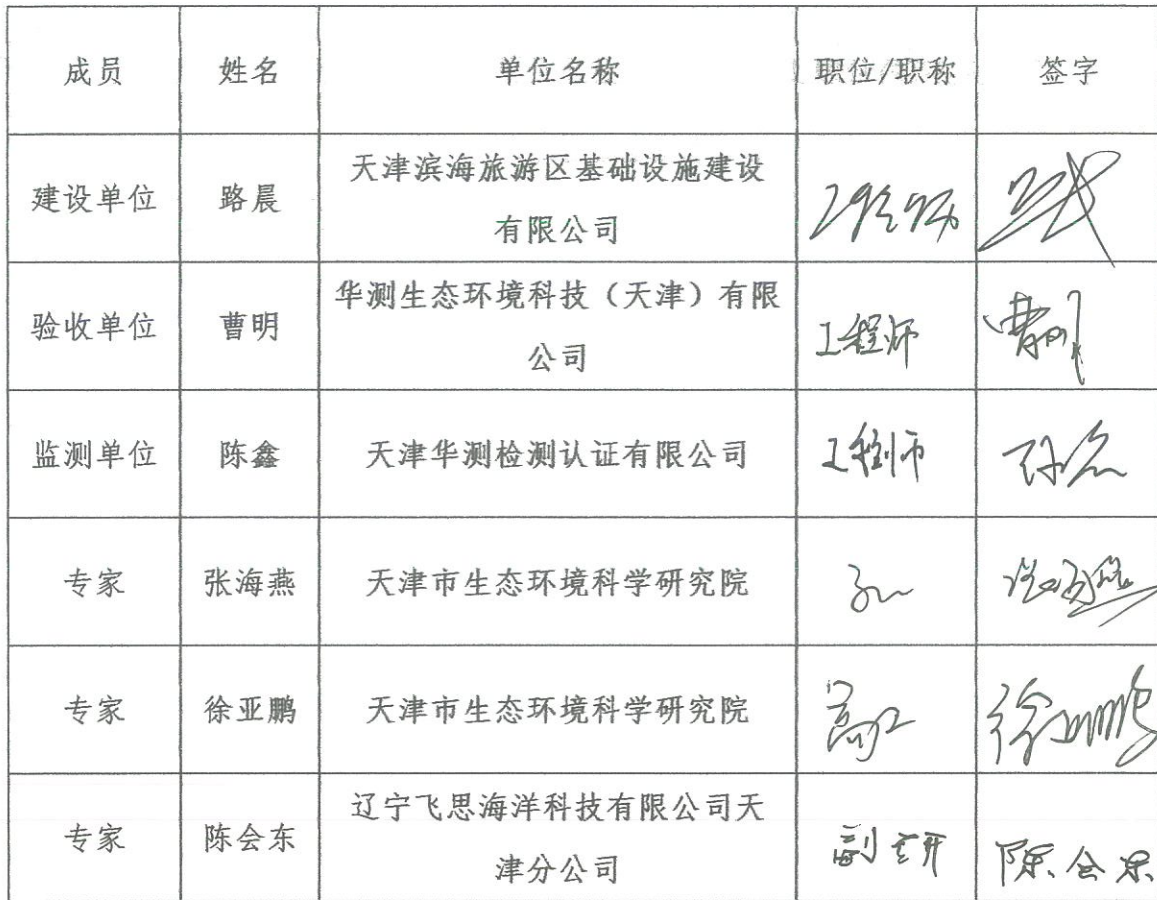 成员 姓名 单位名称 职位/职称 签字
建设单位 路晨 天津滨海旅游区基础设施建设
有限公司 工程师
验收单位 曹明 华测生态环境科技（天津）有限
公司 工程师 曹明
监测单位 陈鑫 天津华测检测认证有限公司 工程师
专家 张海燕 天津市生态环境科学研究院 张海燕
专家 徐亚鹏 天津市生态环境科学研究院 高工 徐亚鹏
专家 陈会东 辽宁飞思海洋科技有限公司天
津分公司 副研 陈会东